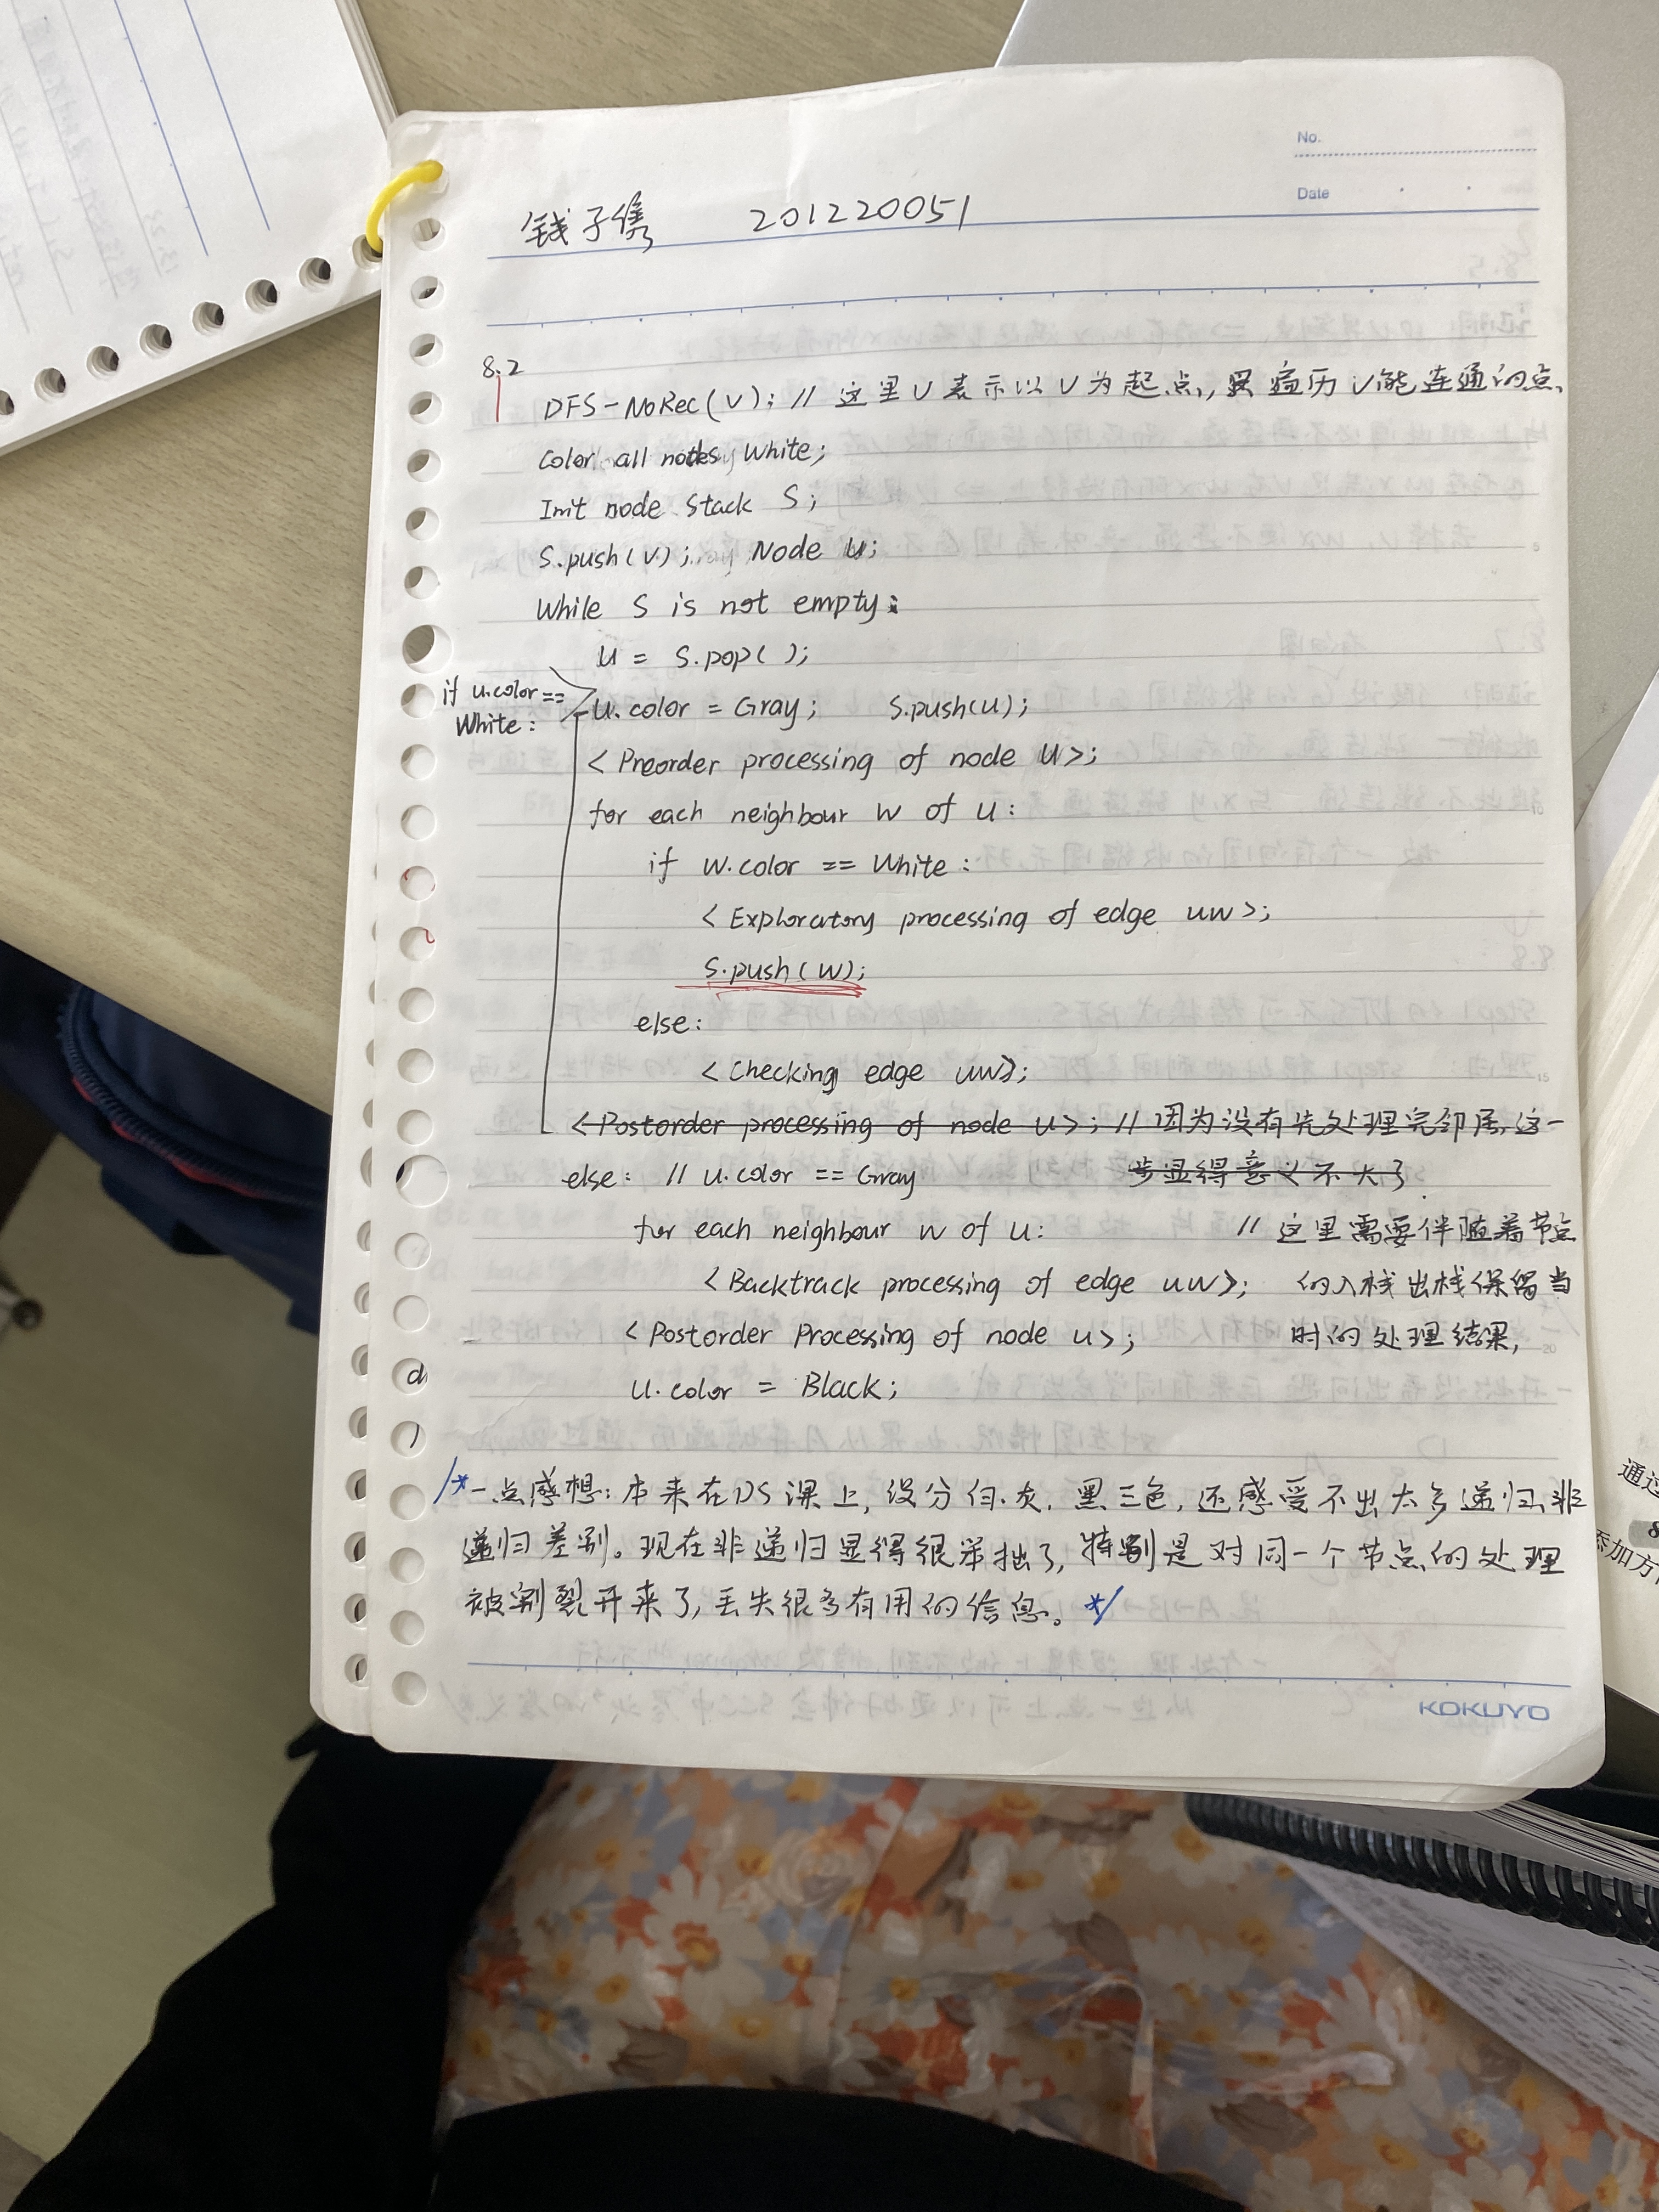 No.
Date
钱子隽 201220051
8.2
DFS-NoRec(v); // 这里v表示以v为起点,只遍历v能连通的点、
Color all nodes White;
Init node stack S;
S.push(v); Node u;
While S is not empty:
u = S.pop( );
if u.color ==
White:
u.color = Gray; S.push(u);
< Preorder processing of node u>;
for each neighbour w of u:
if w.color == White:
< Exploratory processing of edge uw>;
S.push(w);
else:
< Checking edge uw>;
< Postorder processing of node u>; // 因为没有先处理完邻居,这一
步显得意义不大了.
else: // u.color == Gray
for each neighbour w of u: // 这里需要伴随着节点
< Backtrack processing of edge uw>; 的入栈出栈保留当
< Postorder Processing of node u>; 时的处理结果,
u.color = Black;
/*一点感想: 本来在DS课上, 没分白.灰.黑三色, 还感受不出太多递归、非
递归差别。现在非递归显得很笨拙了, 特别是对同一个节点的处理
被割裂开来了, 丢失很多有用的信息。*/
KOKUYO
通过
添加方